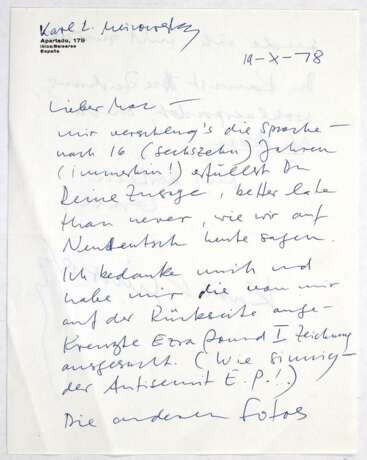 Karl L.
Apartado, 179
Ibiza/Baleares
España
19-X-78
Lieber Max —
mir verschlug's die Sprache –
nach 16 (sechszehn) Jahren
(immerhin!) erfüllst Du
Deine Zusage, better late
than never, wie wir auf
Neudeutsch heute sagen.
Ich bedanke mich und
habe mir die von mir
auf der Rückseite ange-
kreuzte Ezra Pound I Zeichnung
ausgesucht. (Wie sinnig –
der Antisemit E.P.!)
Die anderen Fotos